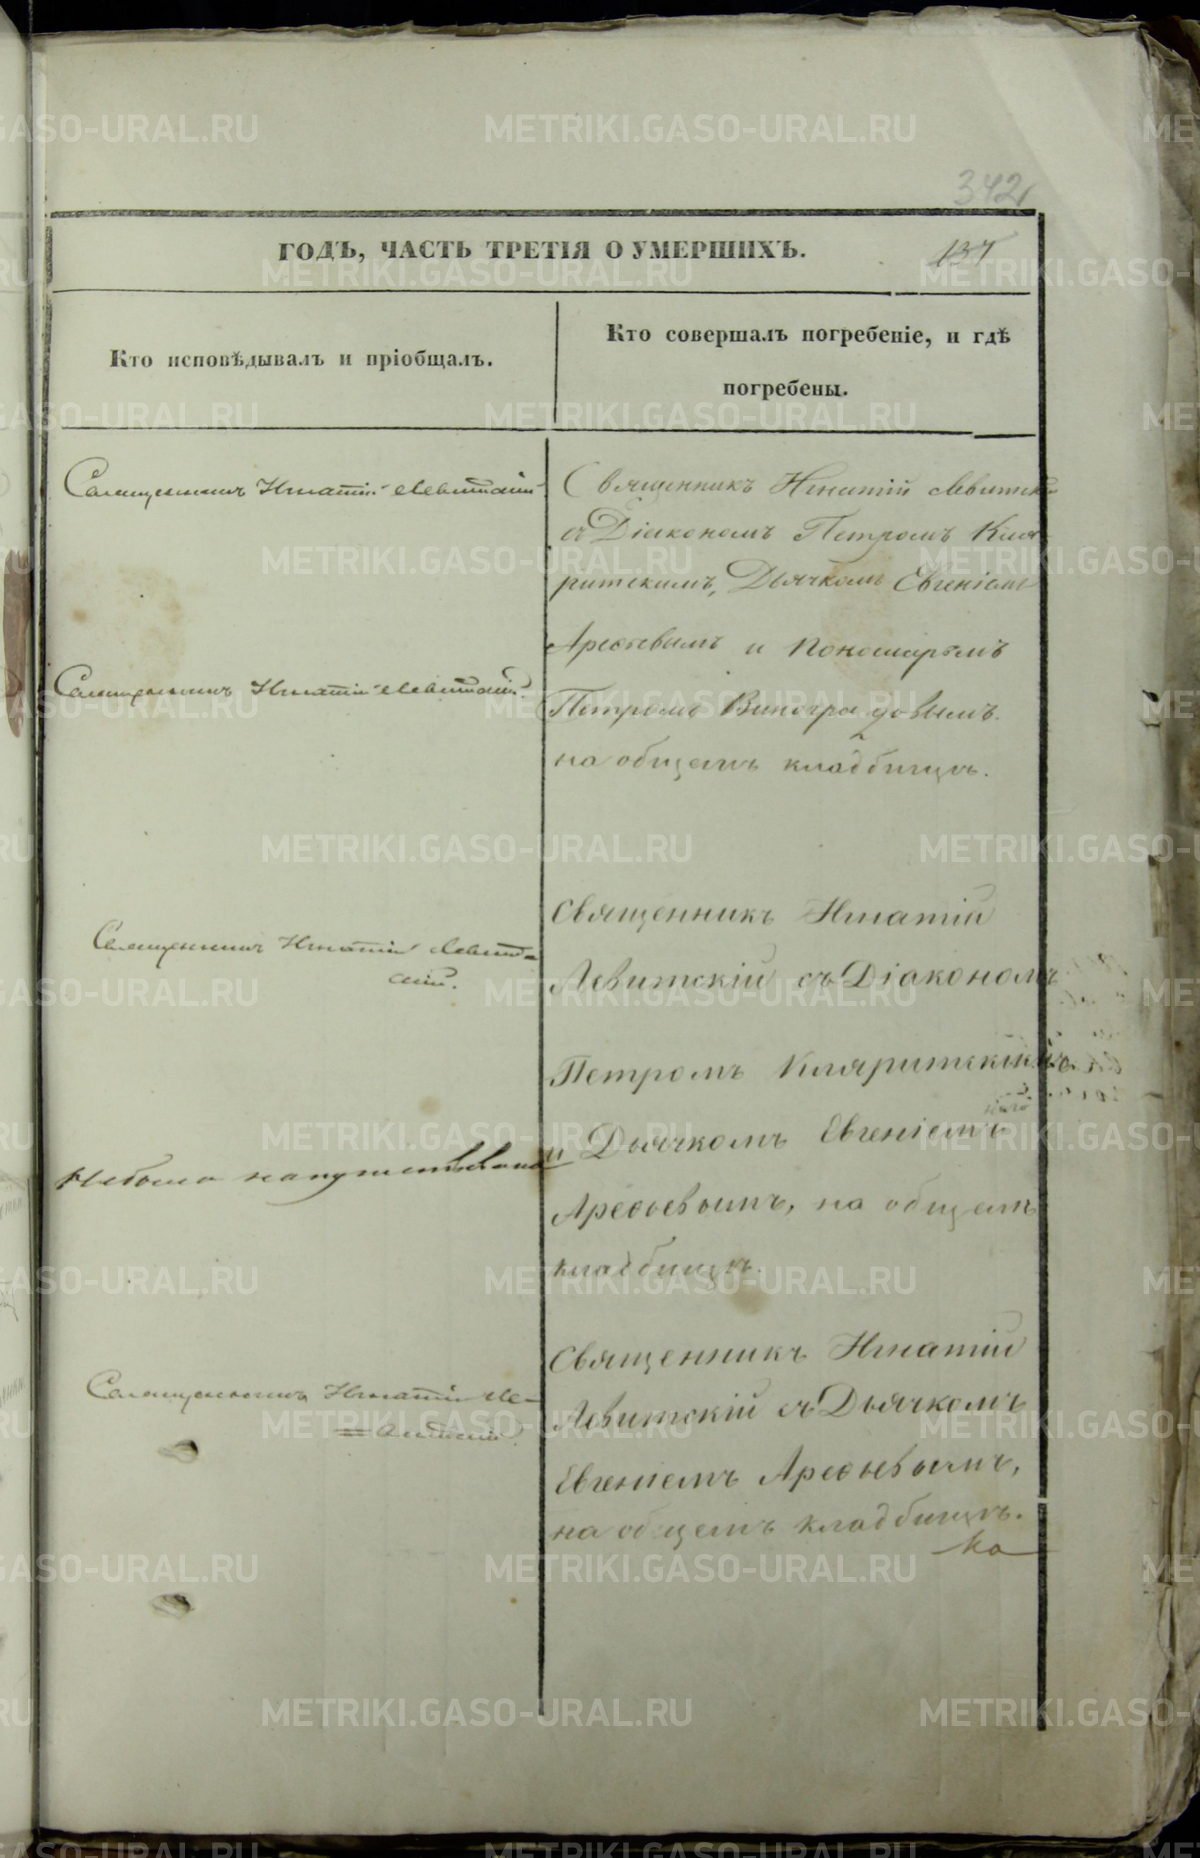 342
ГОДЪ, ЧАСТЬ ТРЕТІЯ О УМЕРШИХЪ.
137
Кто исповѣдывалъ и пріобщалъ.
Кто совершалъ погребеніе, и гдѣ
погребены.
Священникъ Игнатій Левитскій
Священникъ Игнатій Левитскій.
Священникъ Игнатій Левит=
скій.
Небыла напутствована
Священникъ Игнатій Ле=
=витскій.
Священникъ Игнатій Левитскій
съ Діакономъ Петромъ Кля
ритскимъ, Дьячкомъ Евгеніемъ
Арефьевымъ и Пономаремъ
Петромъ Виноградовымъ
на общемъ кладбищѣ.
Священникъ Игнатій
Левитскій съ Діакономъ
Петромъ Кляритскимъ
и Дьячкомъ Евгеніемъ
Арефьевымъ, на общемъ
кладбищѣ.
Священникъ Игнатій
Левитскій съ Дьячкомъ
Евгеніемъ Арефьевымъ,
на общемъ кладбищѣ.
Ко
METRIKI.GASO-URAL.RU